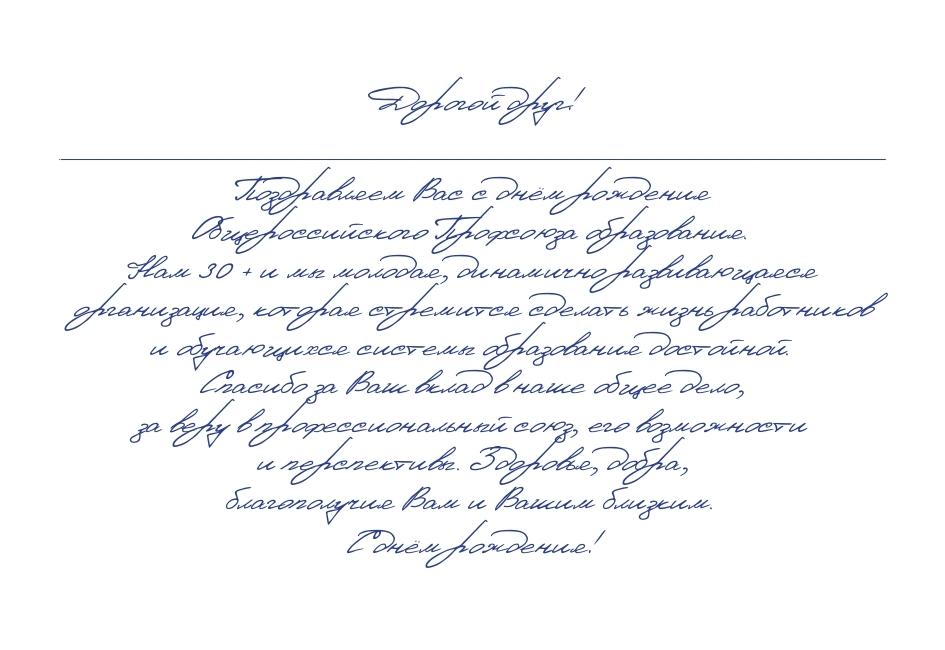 Дорогой друг!
Поздравляем Вас с днём рождение
Общероссийского Профсоюза образования.
Нам 30 + и мы молодая, динамично развивающаяся
организация, которая стремится сделать жизнь работников
и обучающихся системы образования достойной.
Спасибо за Ваш вклад в наше общее дело,
за веру в профессиональный союз, его возможности
и перспективы. Здоровья, добра,
благополучия Вам и Вашим близким.
С днём рождения!